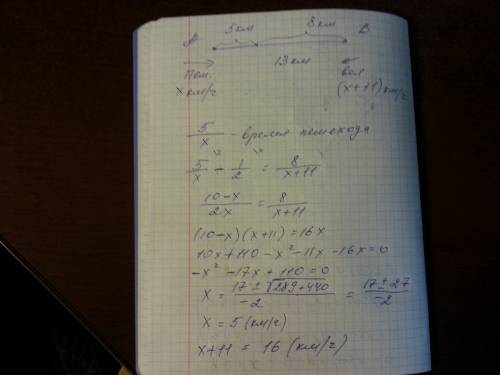 A 5км 8км B
13км
пеш. вел
x км/ч (x+11) км/ч
5/x - время пешехода
5/x - 1/2 = 8/(x+11)
(10-x)/2x = 8/(x+11)
(10-x)(x+11) = 16x
10x+110-x²-11x-16x=0
-x²-17x+110=0
x = (17±√(289+440))/-2 = (17±27)/-2
x = 5 (км/ч)
x+11 = 16 (км/ч)